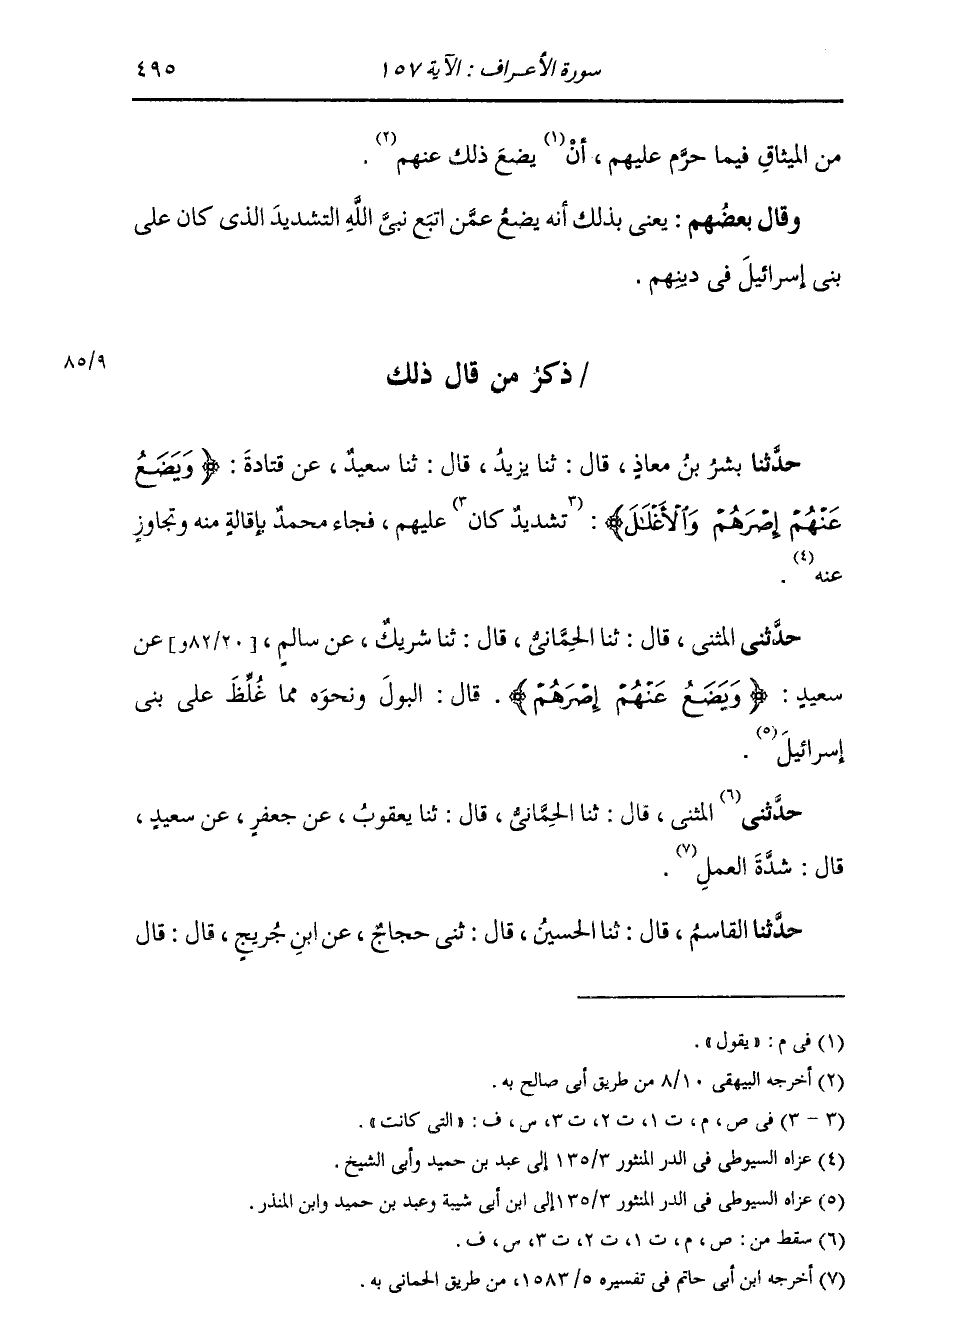 سورة الأعراف : الآية ١٥٧ ٤٩٥
من الميثاقِ فيما حرَّم عليهم ، أنْ(١) يضعَ ذلك عنهم(٢) .
وقال بعضُهم : يعنى بذلك أنه يضعُ عمَّن اتبَع نبىَّ اللَّهِ التشديدَ الذى كان على
بنى إسرائيلَ فى دينِهم .
٨٥/٩
/ ذكرُ من قال ذلك
حدَّثنا بشرُ بنُ معاذٍ ، قال : ثنا يزيدُ ، قال : ثنا سعيدٌ ، عن قتادةَ : ﴿ وَيَضَعُ
عَنْهُمْ إِصْرَهُمْ وَٱلْأَغْلَٰلَ ﴾ : (٣تشديدٌ كان٣) عليهم ، فجاء محمدٌ بإقالةٍ منه وتجاوزٍ
عنه(٤) .
حدَّثنى المثنى ، قال : ثنا الحِمَّانىُّ ، قال : ثنا شريكٌ ، عن سالمٍ ، [٨٢/٢٠و] عن
سعيدٍ : ﴿ وَيَضَعُ عَنْهُمْ إِصْرَهُمْ ﴾ . قال : البولَ ونحوَه مما غُلِّظَ على بنى
إسرائيلَ(٥) .
حدَّثنى(٦) المثنى ، قال : ثنا الحِمَّانىُّ ، قال : ثنا يعقوبُ ، عن جعفرٍ ، عن سعيدٍ ،
قال : شدَّةَ العملِ(٧) .
حدَّثنا القاسمُ ، قال : ثنا الحسينُ ، قال : ثنى حجاجٌ ، عن ابنِ جُريجٍ ، قال : قال
(١) فى م : « يقول » .
(٢) أخرجه البيهقى ٨/١٠ من طريق أبى صالح به .
(٣ - ٣) فى ص ، م ، ت ١، ت ٢، ت ٣، س ، ف : « التى كانت » .
(٤) عزاه السيوطى فى الدر المنثور ١٣٥/٣ إلى عبد بن حميد وأبى الشيخ .
(٥) عزاه السيوطى فى الدر المنثور ١٣٥/٣إلى ابن أبى شيبة وعبد بن حميد وابن المنذر .
(٦) سقط من : ص ، م ، ت ١، ت ٢، ت ٣، س ، ف .
(٧) أخرجه ابن أبى حاتم فى تفسيره ٥/ ١٥٨٣، من طريق الحمانى به .